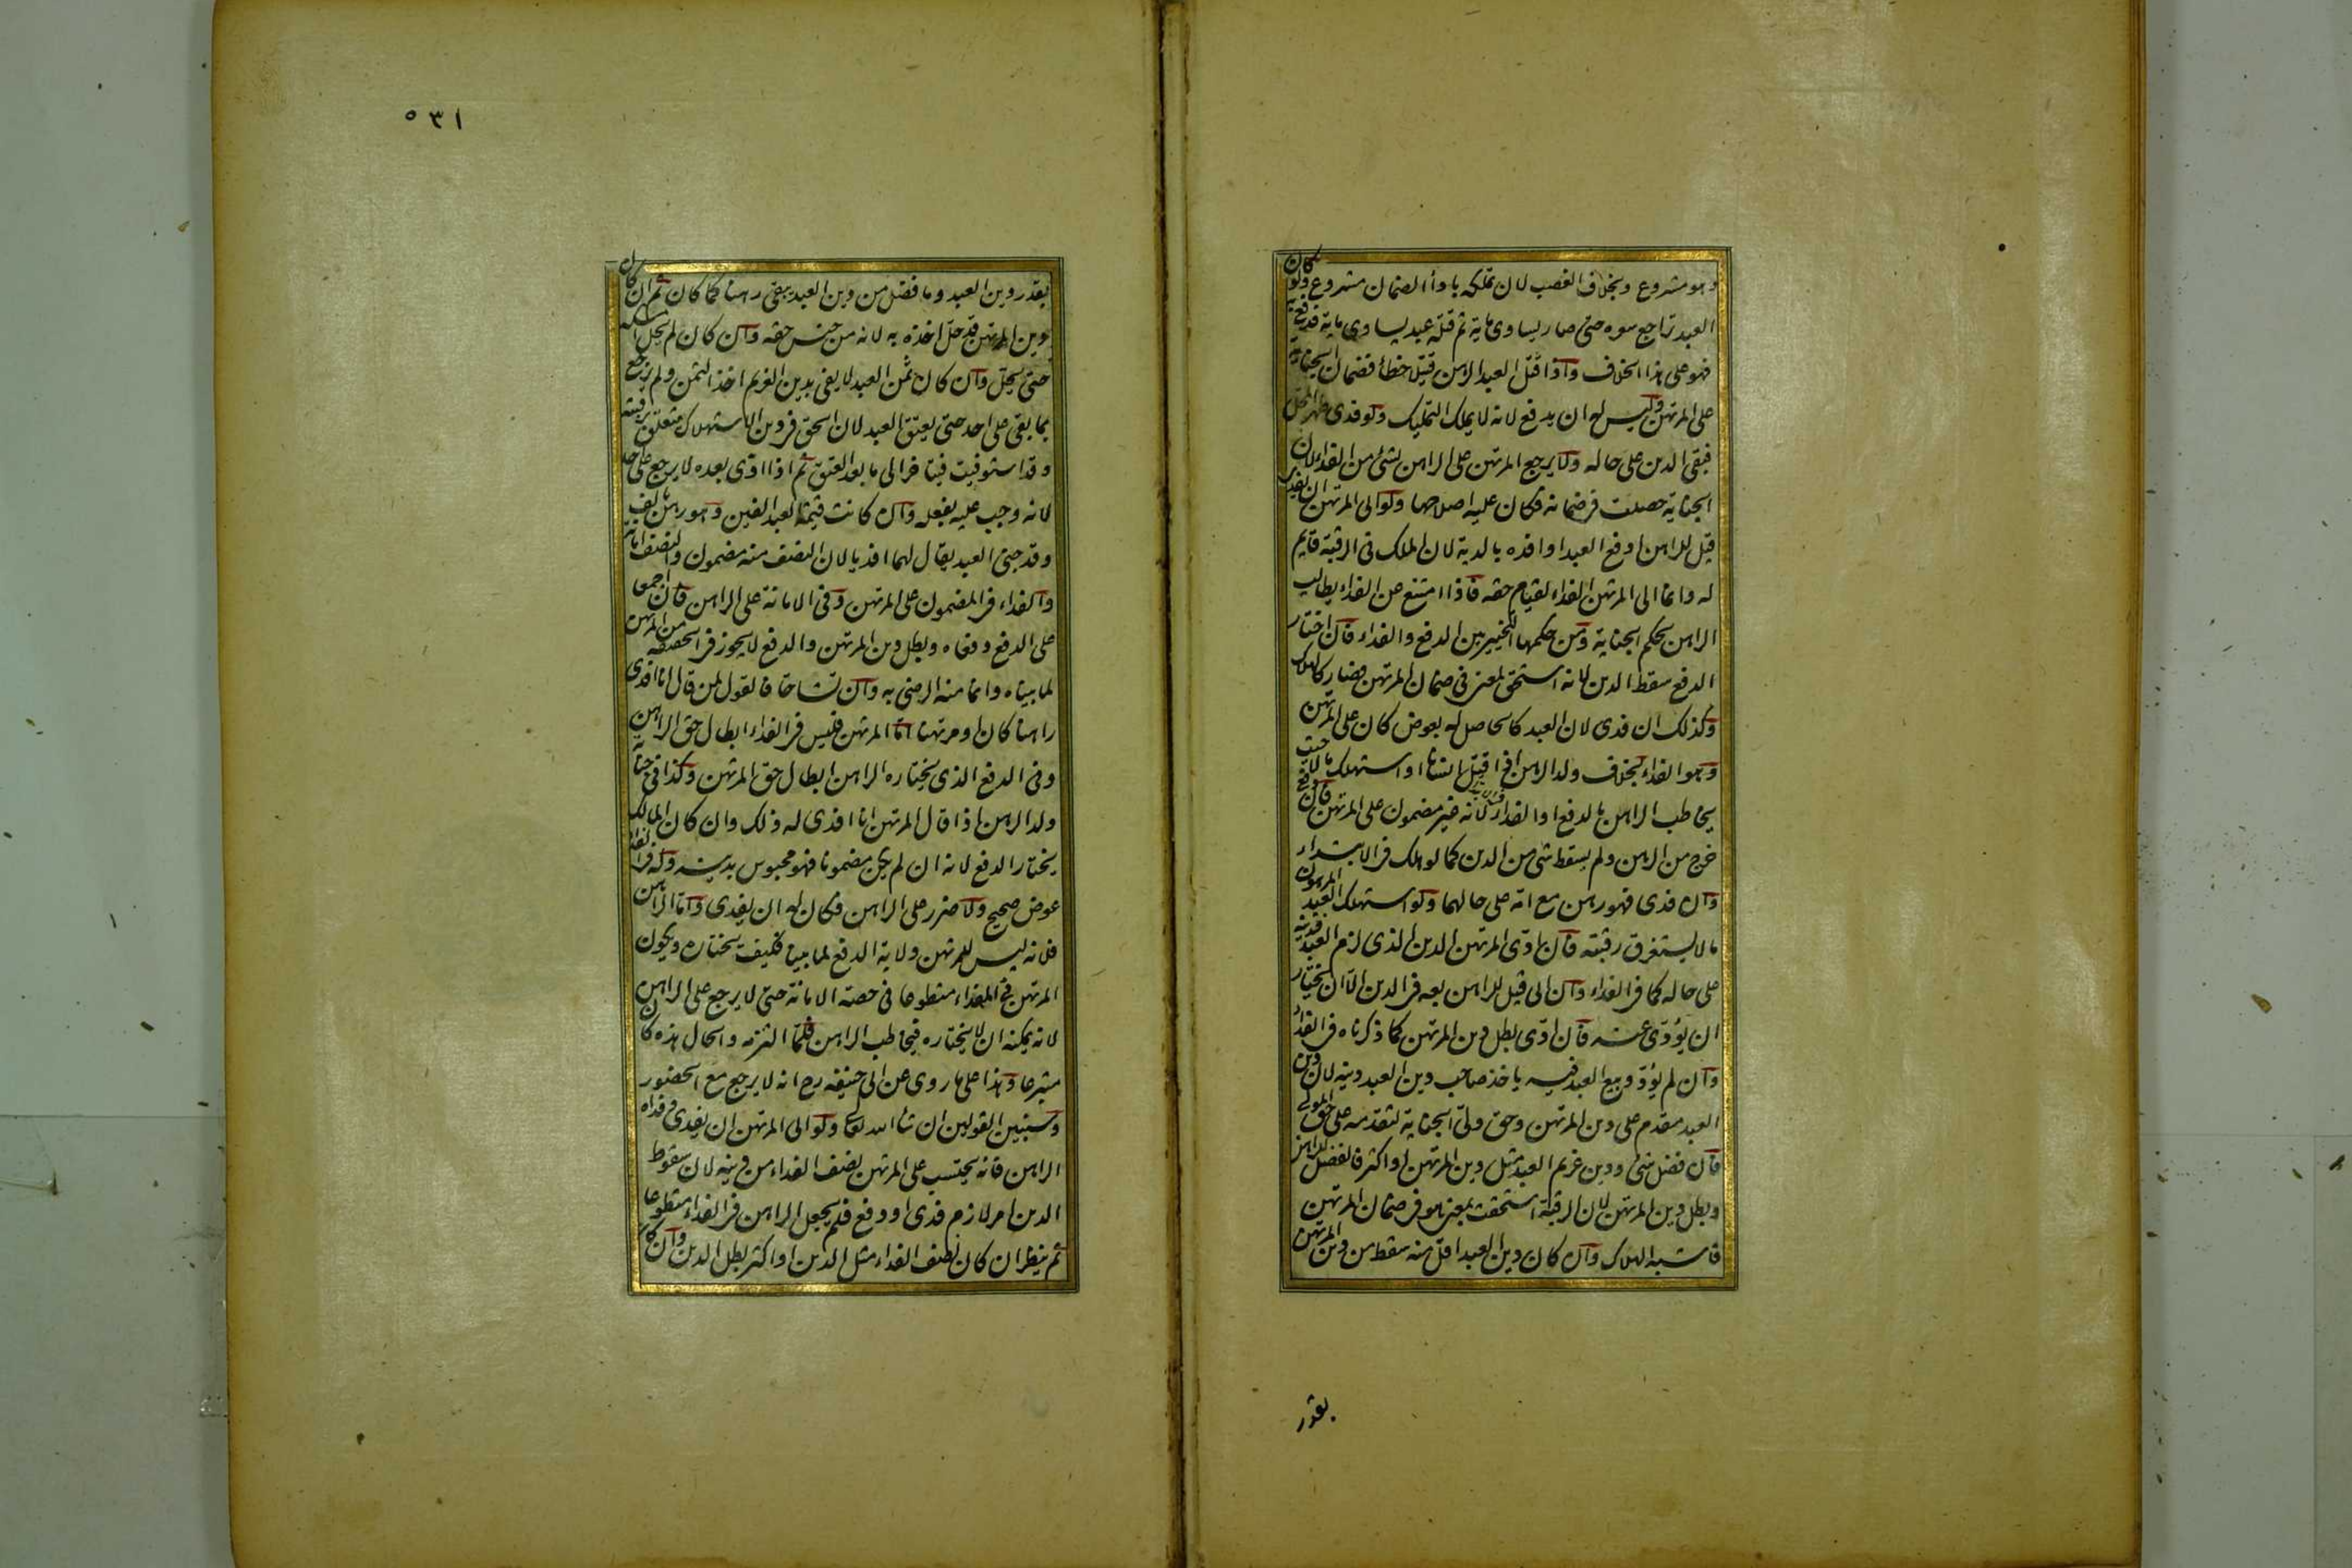 وهو مشروع وبخلاف الغصب لان تملكه باداء الضمان مشروع ولو كان
العبد تراجع سعره حتى صار يساوي مائة ثم قتله عبد يساوي ماية فدفع به
فهو على هذا الخلاف واذا قتل العبد الرهن قتيل خطأ فضمان الجناية
على المرتهن وليس له ان يدفع لانه لا يملك التمليك ولو فدى طهر المحل
فبقى الدين على حاله ولا يرجع المرتهن على الراهن بشئ من الفداء لان
الجناية حصلت فى ضمانه فكان عليه اصلاحها ولو ابى المرتهن ان يفدى
قيل للراهن ادفع العبد او افده بالدية لان الملك فى الرقبة قايم
له وانما الى المرتهن الفداء لقيام حقه فاذا امتنع عن الفداء يطالب
الراهن بحكم الجناية ومن حكمها التخيير بين الدفع والفداء فان اختار
الدفع سقط الدين لانه استحق لمعنى فى ضمان المرتهن فصار كالهلاك
وكذلك ان فدى لان العبد كالحاصل له بعوض كان على المرتهن
وهو الفداء بخلاف ولد الرهن اذا قتل انسانا او استهلك مالا حيث
يخاطب الراهن بالدفع او الفداء لانه غير مضمون على المرتهن فان دفع
خرج من الرهن ولم يسقط شئ من الدين كما لو هلك فى الابتداء
وان فدى فهو رهن مع امه على حالهما ولو استهلك العبد المرهون
مالا يستغرق رقبته فان ادى المرتهن الدين الذى لزم العبد فدينه
على حاله كما فى الفداء وان ابى قيل للراهن بعه فى الدين الا ان يختار
ان يؤدى عنه فان ادى بطل دين المرتهن كما ذكرناه فى الفداء
وان لم يؤد وبيع العبد فيه ياخذ صاحب دين العبد دينه لان دين
العبد مقدم على دين المرتهن وحق ولى الجناية لتقدمه على حق المولى
فان فضل شئ ودين غريم العبد مثل دين المرتهن او اكثر فالفضل للراهن
وبطل دين المرتهن لان الرقبة استحقت بمعنى هو فى ضمان المرتهن
فاشبه الهلاك وان كان دين العبد اقل منه سقط من دين المرتهن
بقدر
٥٣١
بقدر دين العبد وما فضل من دين العبد يبقى رهنا كما كان ثم ان كان
دين المرتهن قد حل اخذه به لانه من جنس حقه وان كان لم يحل امسكه
حتى يحل وان كان ثمن العبد لا يفى بدين الغريم اخذ الثمن ولم يرجع
بما بقى على احد حتى يعتق العبد لان الحق فى دين الاستهلاك متعلق برقبته
وقد استوفيت فيتاخر الى ما بعد العتق ثم اذا ادى بعده لا يرجع على احد
لانه وجب عليه بفعله وان كانت قيمة العبد الفين وهو رهن بالف
وقد جنى العبد يقال لهما افديا لان النصف منه مضمون والنصف امانة
والفداء فى المضمون على المرتهن وفى الامانة على الراهن فان اجمعا
على الدفع دفعاه وبطل دين المرتهن والدفع لا يجوز فى الحقيقة من المرتهن
لما بيناه وانما منه الرضى به وان تشاحا فالقول لمن قال انا افدى
راهنا كان او مرتهنا اما المرتهن فليس فى الفداء ابطال حق الراهن
وفى الدفع الذى يختاره الراهن ابطال حق المرتهن وكذا فى جناية
ولد الرهن اذا قال المرتهن انا افدى له ذلك وان كان المالك
يختار الدفع لانه ان لم يكن مضمونا فهو محبوس بدينه وله فى الفداء
عوض صحيح ولا ضرر على الراهن فكان له ان يفدى واما الراهن
فلانه ليس للمرتهن ولاية الدفع لما بينا فكيف يختاره ويكون
المرتهن فى الفداء متطوعا فى حصة الامانة حتى لا يرجع على الراهن
لانه يمكنه ان لا يختاره فيخاطب الراهن فلما التزمه والحال هذه كان
متبرعا وهذا على ما روى عن ابى حنيفه رح انه لا يرجع مع الحضور
وسنبين القولين ان شاء الله تعالى ولو ابى المرتهن ان يفدى وفداه
الراهن فانه يحتسب على المرتهن نصف الفداء من دينه لان سقوط
الدين امر لازم فدى او دفع فلم يجعل الراهن فى الفداء متطوعا
ثم ينظر ان كان نصف الفداء مثل الدين او اكثر بطل الدين وان كان